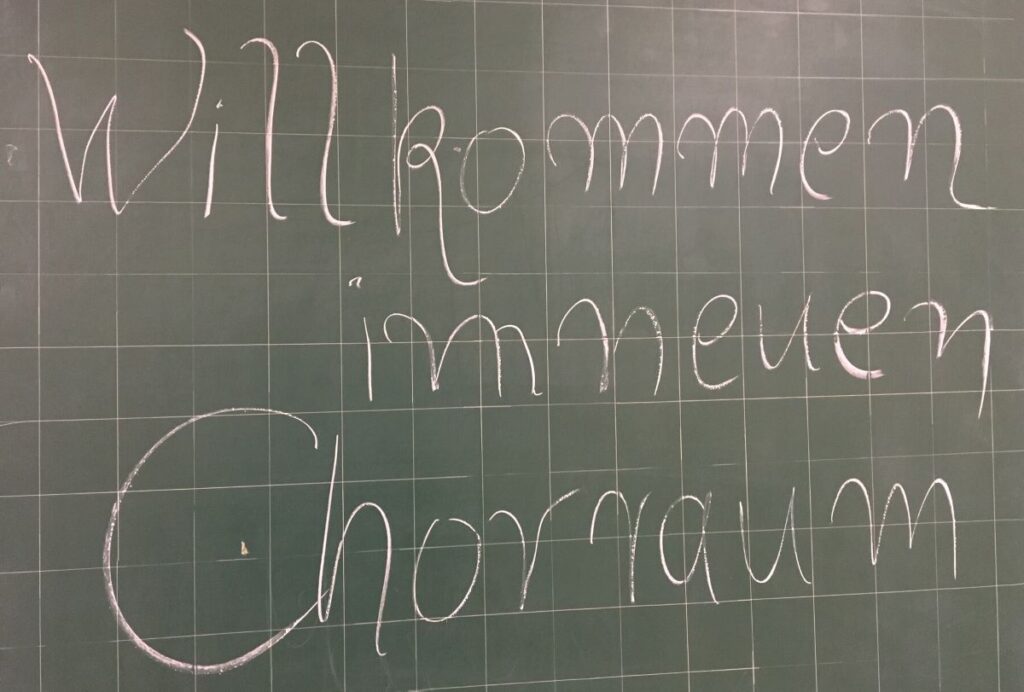 Willkommen
im neuen
Chorraum